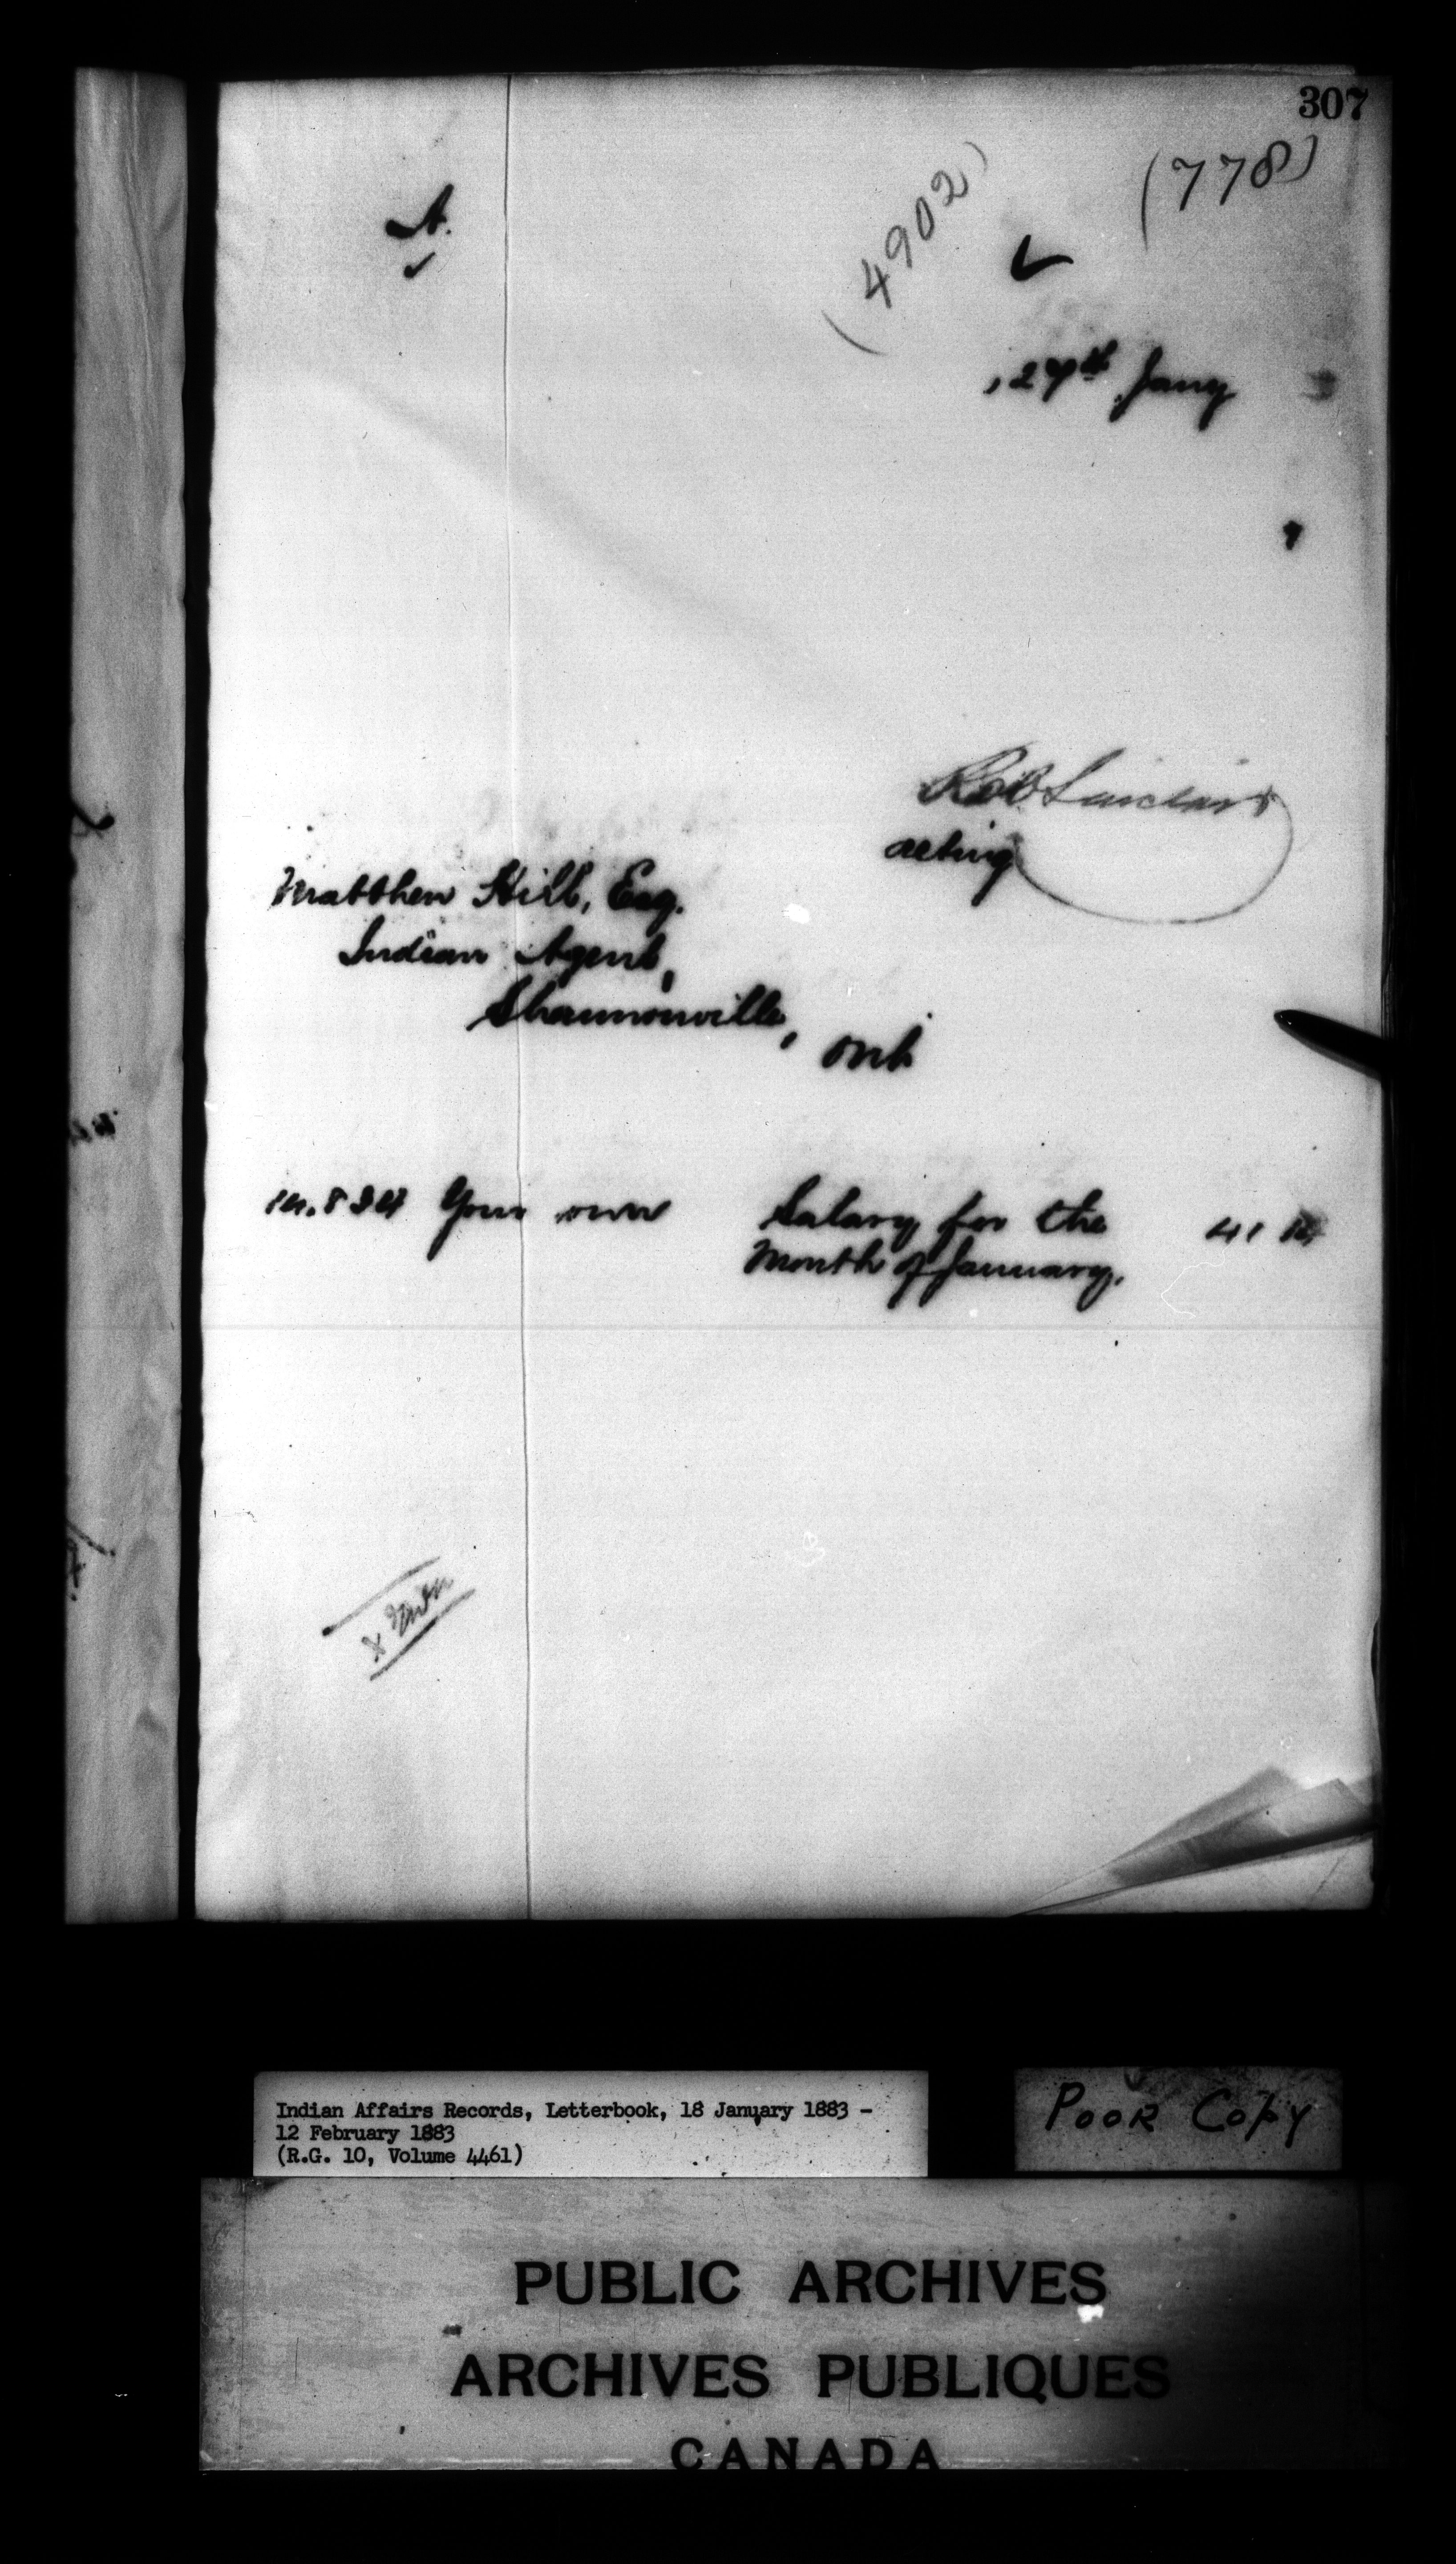 307
(778)
(4902)
A.
, 27th Jany
3
Rob Sinclair
acting
Matthew Hill, Esq.
Indian Agent,
Shannonville,
Ont
Your own Salary for the 41
Month of January.
Indian Affairs Records, Letterbook, 18 January 1883 -
12 February 1883
(R.G. 10, Volume 4461)
POOR COPY
PUBLIC ARCHIVES
ARCHIVES PUBLIQUES
CANADA